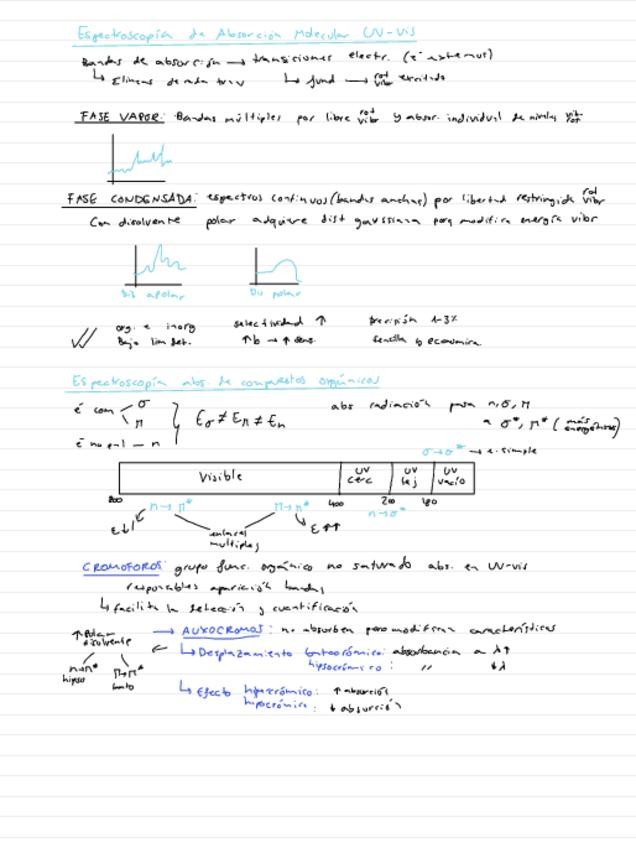 Espectroscopía de Absorción Molecular UV-vis
Bandas de absorción → transiciones electr. (e⁻ externos)
↳ E líneas de cada trans ↳ fund → rot vibr excitado
FASE VAPOR: Bandas múltiples por libre rot vibr y absor. individual de niveles vib rot
FASE CONDENSADA: espectros continuos (bandas anchas) por libertad restringida rot vibr
Con disolvente polar adquiere dist gaussiana porq modifica energía vibr
Dis apolar Dis polar
org. e inorg selectividad ↑ precisión 1-3%
Bajo lím det. ↑b → ↑sens. sencilla y económica
Espectroscopía abs. de compuestos orgánicos
é com σ π
é no enl — n
Eσ ≠ Eπ ≠ En
abs radiación pasa n, σ, π
a σ*, π* (más energéticos)
σ→σ* → e. simple
Visible UV cerc UV lej UV vacío
800 400 200 180
n→π* π→π* n→σ*
ε↓ enlaces multiples ε↑↑
CROMOFOROS: grupo func. orgánico no saturado abs. en UV-vis
responsables aparición bandas
↳ facilita la selección y cuantificación
↑Polar disolvente
n→π* hipso
π→π* bato
→ AUXOCROMOS: no absorben pero modifican características
↳ Desplazamiento batocrómico: absorbancia a λ↑
hipsocrómico: " ↓λ
↳ Efecto hipercrómico: ↑ absorción
hipocrómico: ↓ absorción